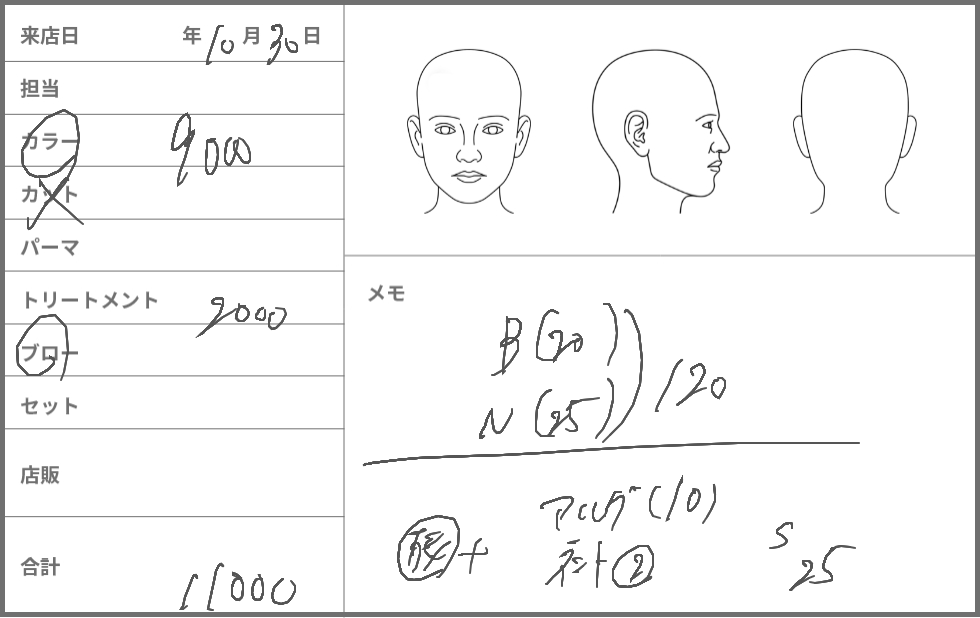 来店日 年10月30日
担当
カラー 9000
カット
パーマ
トリートメント 2000
ブロー
セット
店販
合計 11000
メモ
B(20)
N(25)) /20
(10)
+ ネット② S 25